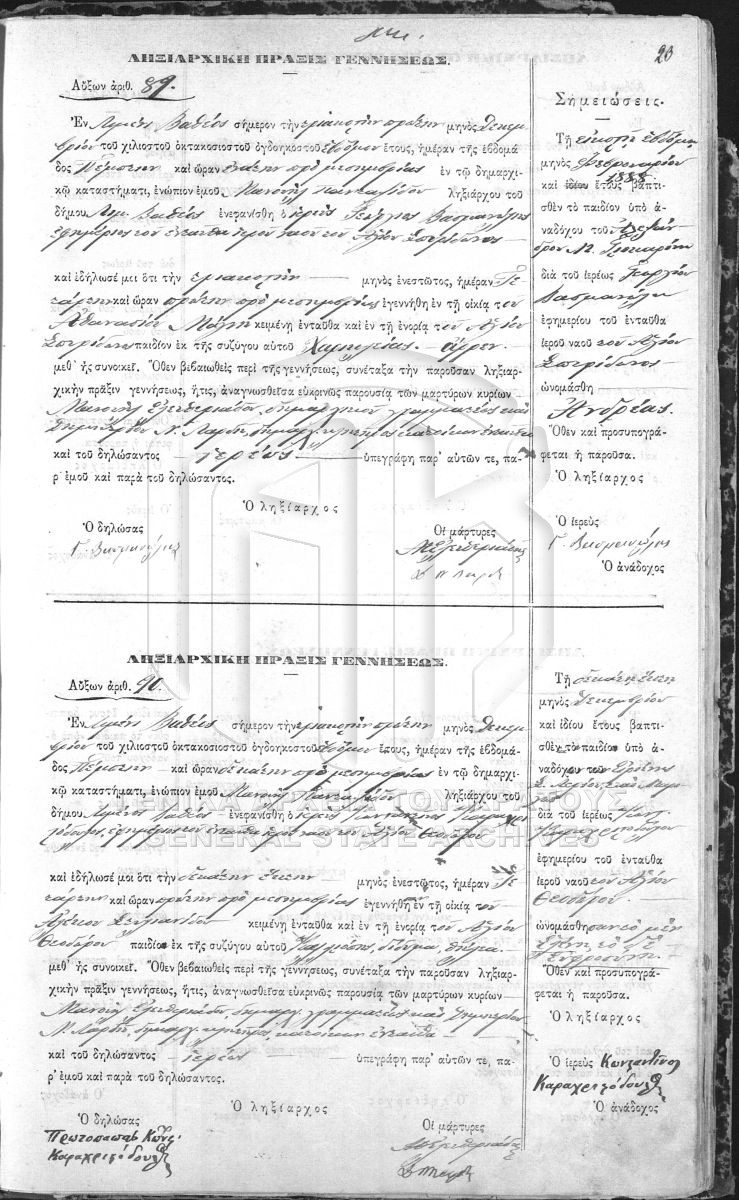 23
ΛΗΞΙΑΡΧΙΚΗ ΠΡΑΞΙΣ ΓΕΝΝΗΣΕΩΣ.
Αὔξων ἀριθ. 89.
Ἐν Λιμένι Βαθέος σήμερον τὴν τριακοστὴν πρώτην μηνὸς Δεκεμ-
βρίου τοῦ χιλιοστοῦ ὀκτακοσιοστοῦ ὀγδοηκοστοῦ ἑβδόμου ἔτους, ἡμέραν τῆς ἑβδομά-
δος Πέμπτην καὶ ὥραν ἐνάτην πρὸ μεσημβρίας ἐν τῷ δημαρχι-
κῷ καταστήματι, ἐνώπιον ἐμοῦ Μανουὴλ ληξιάρχου τοῦ
δήμου Λιμ. Βαθέος ἐνεφανίσθη ὁ ἱερεὺς Γεώργιος
ἐφημέριος τοῦ ἐνταῦθα ἱεροῦ ναοῦ τοῦ Ἁγίου Σπυρίδωνος
καὶ ἐδήλωσέ μοι ὅτι τὴν τριακοστὴν μηνὸς ἐνεστῶτος, ἡμέραν Τε
τάρτην καὶ ὥραν πρώτην πρὸ μεσημβρίας ἐγεννήθη ἐν τῇ οἰκίᾳ τοῦ
Ἀθανασίου κειμένῃ ἐνταῦθα καὶ ἐν τῇ ἐνορίᾳ τοῦ Ἁγίου
Σπυρίδωνος παιδίον ἐκ τῆς συζύγου αὐτοῦ ἄρρεν
μεθ' ἧς συνοικεῖ. Ὅθεν βεβαιωθεὶς περὶ τῆς γεννήσεως, συνέταξα τὴν παροῦσαν ληξιαρ-
χικὴν πρᾶξιν γεννήσεως, ἥτις, ἀναγνωσθεῖσα εὐκρινῶς παρουσίᾳ τῶν μαρτύρων κυρίων
Μανουὴλ Ἐλευθεριάδου, δημαρχικοῦ γραμματέως καὶ
Δημητρίου Ν. κατοίκων ἐνταῦθα
καὶ τοῦ δηλώσαντος ἱερέως ὑπεγράφη παρ' αὐτῶν τε, πα-
ρ' ἐμοῦ καὶ παρὰ τοῦ δηλώσαντος.
Ὁ ληξίαρχος
Ὁ δηλώσας
Οἱ μάρτυρες
Σημειώσεις.
Τῇ εἰκοστῇ ἑβδόμῃ
μηνὸς Φεβρουαρίου
1888
καὶ ἰδίου ἔτους βαπτι-
σθὲν τὸ παιδίον ὑπὸ ἀ-
ναδόχου τοῦ Ἀλεξάν
δρου Μ.
διὰ τοῦ ἱερέως Γεωργίου
ἐφημερίου τοῦ ἐνταῦθα
ἱεροῦ ναοῦ τοῦ Ἁγίου
Σπυρίδωνος
ὠνομάσθη
Ἀνδρέας.
Ὅθεν καὶ προσυπογρά-
φεται ἡ παροῦσα.
Ὁ ληξίαρχος
Ὁ ἱερεὺς
Ὁ ἀνάδοχος
ΛΗΞΙΑΡΧΙΚΗ ΠΡΑΞΙΣ ΓΕΝΝΗΣΕΩΣ.
Αὔξων ἀριθ. 90.
Ἐν Λιμένι Βαθέος σήμερον τὴν τριακοστὴν πρώτην μηνὸς Δεκεμ-
βρίου τοῦ χιλιοστοῦ ὀκτακοσιοστοῦ ὀγδοηκοστοῦ ἑβδόμου ἔτους, ἡμέραν τῆς ἑβδομά-
δος Πέμπτην καὶ ὥραν δεκάτην πρὸ μεσημβρίας ἐν τῷ δημαρχι-
κῷ καταστήματι, ἐνώπιον ἐμοῦ Μανουὴλ ληξιάρχου τοῦ
δήμου Λιμένος Βαθέος ἐνεφανίσθη ὁ ἱερεὺς Κωνσταντῖνος Καραχριστό
δουλος, ἐφημέριος τοῦ ἐνταῦθα ἱεροῦ ναοῦ τοῦ Ἁγίου Θεοδώρου
καὶ ἐδήλωσέ μοι ὅτι τὴν δεκάτην ἕκτην μηνὸς ἐνεστῶτος, ἡμέραν Τε
τάρτην καὶ ὥραν πρώτην πρὸ μεσημβρίας ἐγεννήθη ἐν τῇ οἰκίᾳ τοῦ
κειμένῃ ἐνταῦθα καὶ ἐν τῇ ἐνορίᾳ τοῦ Ἁγίου
Θεοδώρου παιδίον ἐκ τῆς συζύγου αὐτοῦ δίδυμα, θήλεα
μεθ' ἧς συνοικεῖ. Ὅθεν βεβαιωθεὶς περὶ τῆς γεννήσεως, συνέταξα τὴν παροῦσαν ληξιαρ-
χικὴν πρᾶξιν γεννήσεως, ἥτις, ἀναγνωσθεῖσα εὐκρινῶς παρουσίᾳ τῶν μαρτύρων κυρίων
Μανουὴλ Ἐλευθεριάδου, δημαρχ. γραμματέως καὶ Δημητρίου
Ν. κατοίκων ἐνταῦθα
καὶ τοῦ δηλώσαντος ἱερέως ὑπεγράφη παρ' αὐτῶν τε, πα-
ρ' ἐμοῦ καὶ παρὰ τοῦ δηλώσαντος.
Ὁ ληξίαρχος
Ὁ δηλώσας
Πρωτοπαπᾶς Κωνς.
Καραχριστόδουλου
Οἱ μάρτυρες
Τῇ δεκάτῃ ἕκτῃ
μηνὸς Δεκεμβρίου
καὶ ἰδίου ἔτους βαπτι-
σθὲν τὸ παιδίον ὑπὸ ἀ-
ναδόχου τοῦ
διὰ τοῦ ἱερέως Κων.
Καραχριστοδούλου
ἐφημερίου τοῦ ἐνταῦθα
ἱεροῦ ναοῦ τοῦ Ἁγίου
Θεοδώρου
ὠνομάσθησαν τὸ μὲν
Ἑλένη, τὸ δὲ
Εὐφροσύνη.
Ὅθεν καὶ προσυπογρά-
φεται ἡ παροῦσα.
Ὁ ληξίαρχος
Ὁ ἱερεὺς Κωνσαντῖνος
Καραχριστόδουλου
Ὁ ἀνάδοχος
ΓΕΝΙΚΑ ΑΡΧΕΙΑ ΤΟΥ ΚΡΑΤΟΥΣ
GENERAL STATE ARCHIVES